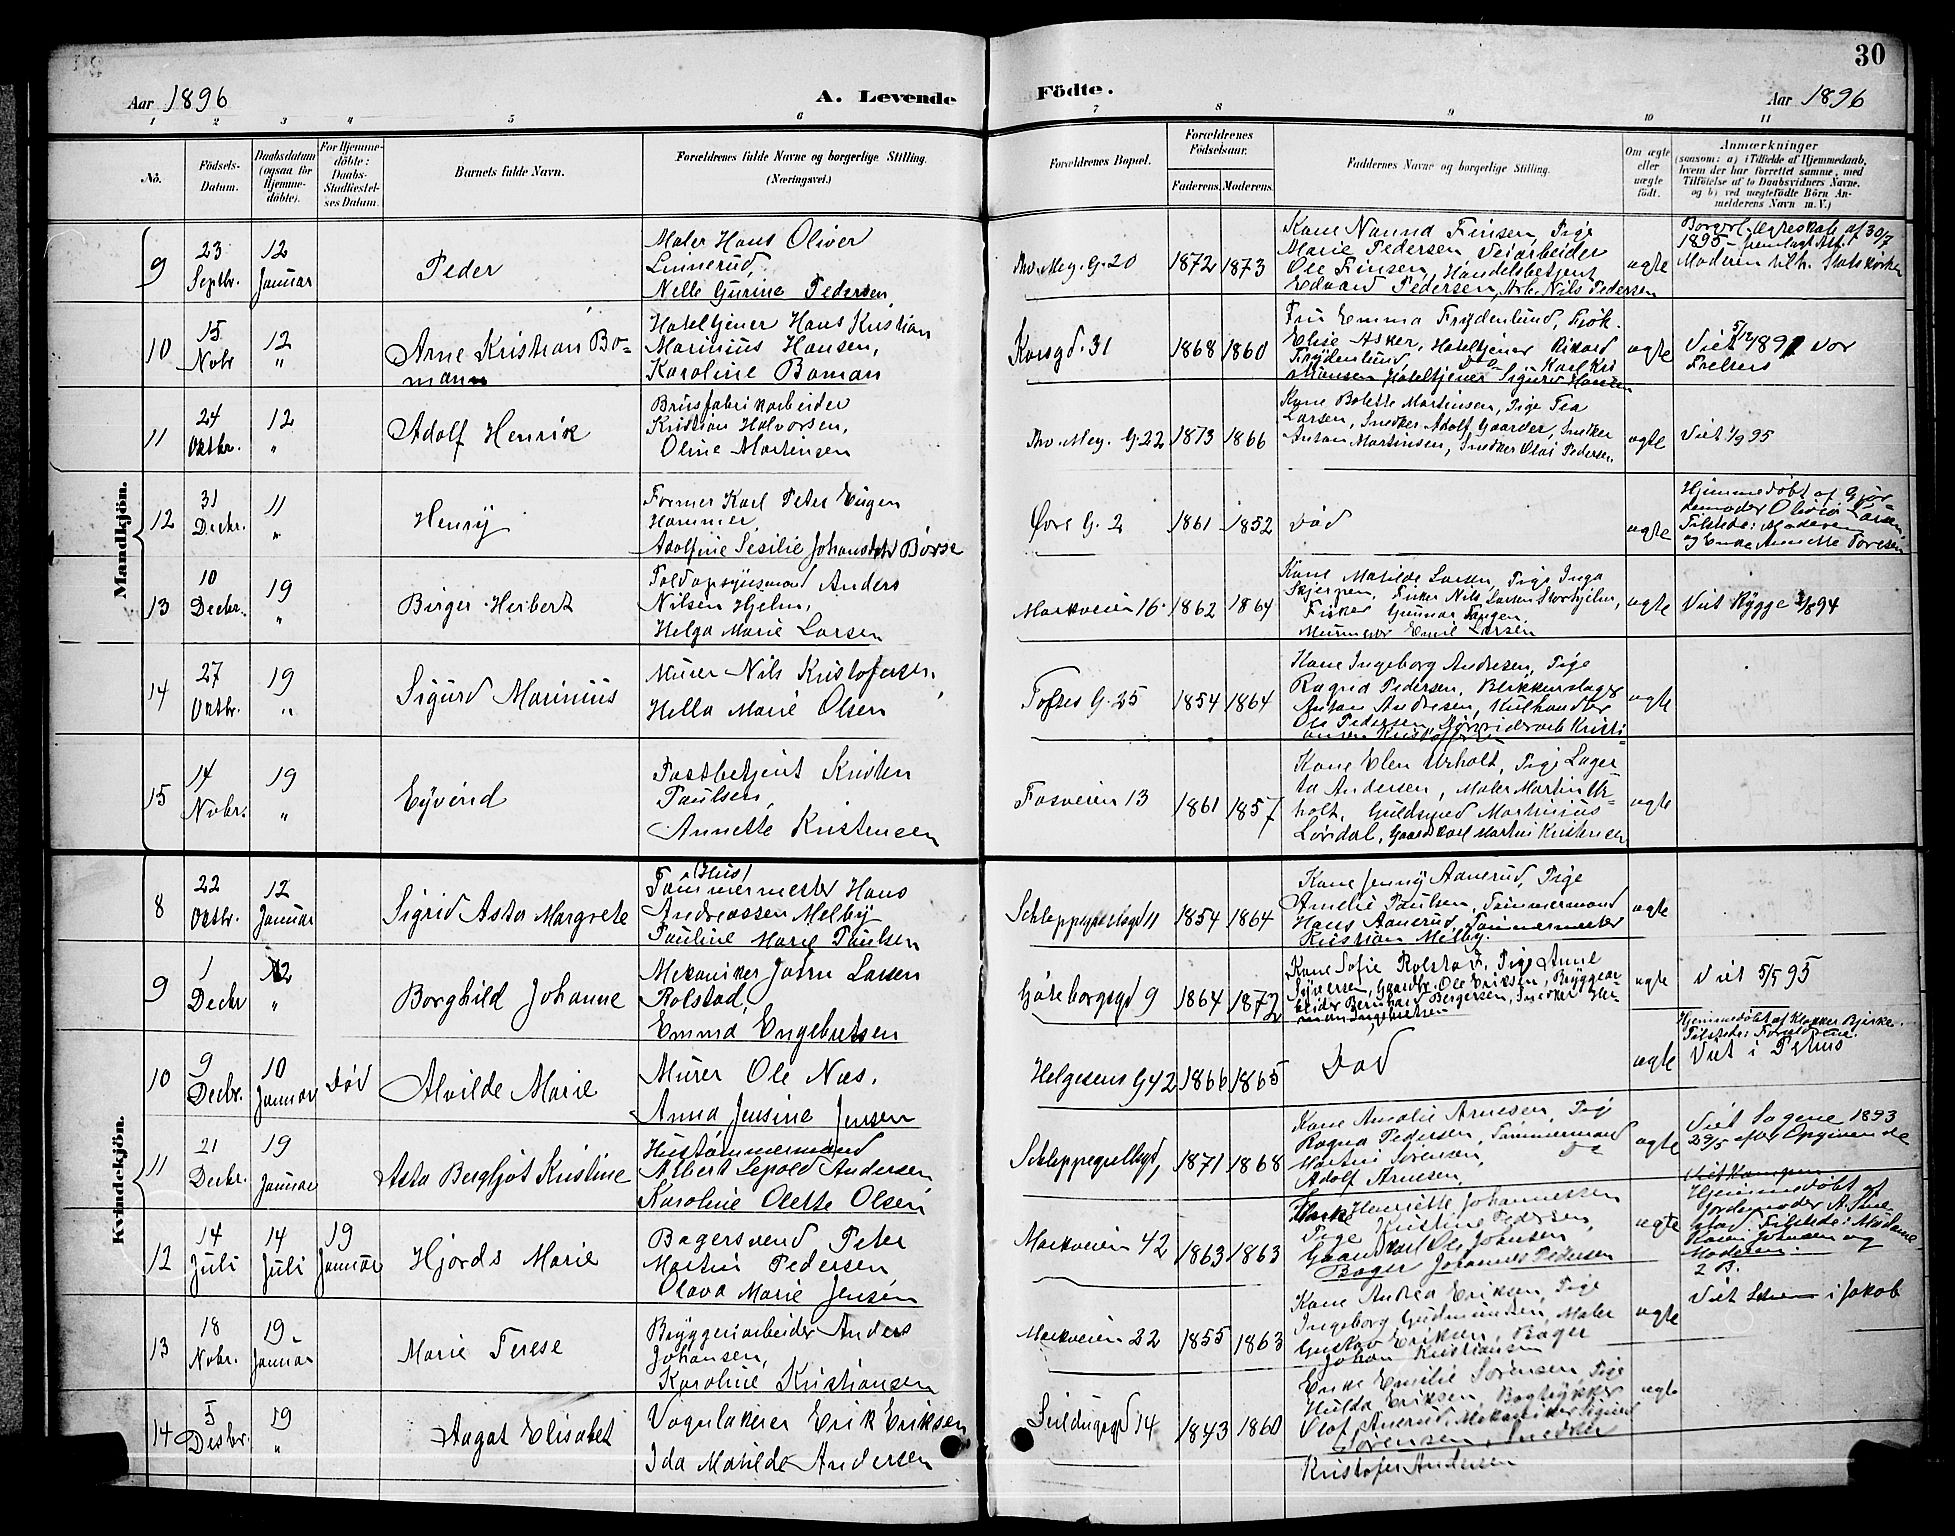 30
Aar 1896
A. Levende
Födte.
Aar 1896
1 2 3 4 5 6 7 8 9 10 11
No.
Födsels-
Datum.
Daabsdatum
(ogsaa for
Hjemme-
döbte).
For Hjemme-
döbte:
Daabs-
Stadfæstel-
ses Datum.
Barnets fulde Navn.
Forældrenes fulde Navne og borgerlige Stilling.
(Næringsvei.)
Forældrenes Bopæl.
Forældrenes
Födselsaar.
Faderens. Moderens.
Faddernes Navne og borgerlige Stilling.
Om ægte
eller
uægte
født.
Anmærkninger
(saasom: a) i Tilfælde af Hjemmedaab,
hvem der har forrettet samme, med
Tilföielse af to Daabsvidners Navne,
og b) ved uægtefödte Börn An-
melderens Navn m. V.)
Mandkjön.
9
23
Septbr.
12
Januar
Peder
Maler Hans Oliver
Linnerud,
Nelle Gurine Pedersen
Thv. Mey. G. 20
1872 1873
Kone Nanna Finsen, Pige
Marie Pedersen, Veiarbeider
Ole Finsen, Handelsbetjent
Edvard Pedersen, Arb. Nils Pedersen
ægte
Borgerl. Ægteskab af 30/7
1895 - fremlagt Att.
Moderen tilh. Statskirken
10
15
Nobr
12
"
Arne Kristian Bo-
mann
Hoteltjener Hans Kristian
Marinius Hansen,
Karoline Boman
Korsgd. 31
1868 1860
Fru Emma Frydenlund, Frøk.
Elise Asker, Hoteltjener Rikard
Frydenlund, Karl Kri
stiansen, Hoteltjener Sigurd Hansen
ægte
Viet 5/12 1891 Vor
Frelsers
11
24
Oktbr.
12
"
Adolf Henrik
Brusfabrikarbeider
Kristian Halvorsen,
Oline Martinsen
Thv. Mey. G. 22
1873 1866
Kone Bolette Martinsen, Pige Tea
Larsen, Snedker Adolf Gaarder, Snedker
Anton Martinsen, Snedker Olai Pedersen.
ægte
Viet 1/9 95
12
31
Decbr.
11
"
Henry
Former Karl Peter Eugen
Hammer,
Adolfine Sesilie Børse
Øvre G. 2
1861 1852
Død
ægte
Hjemmedøbt af Gjor
demoder Olivia Larsen,
Tilstede: Moderen
og Enke Annette Toresen
13
10
Decbr.
19
"
Birger Herbert
Toldopsynsmand Anders
Nilsen Hjelm,
Helga Marie Larsen
Markveien 16
1862 1864
Kone Matilde Larsen, Pige Inga
Skjerpen, Fisker Nils Larsen Storhjelm,
Fisker Gunnar Tangen,
Murmester Emil Larsen
ægte
Viet Rygge 1894
14
27
Oktbr.
19
"
Sigurd Marinius
Murer Nils Kristofersen,
Hella Marie Olsen
Toftes G. 25
1854 1864
Kone Ingeborg Andresen, Pige
Ragna Pedersen, Blikkenslager
Anton Andresen, Kulhandler
Ole Pedersen, Kristi-
ansen Kristoffersen
ægte
15
14
Nobr.
19
"
Eyvind
Postbetjent Kristen
Paulsen,
Annette Kristensen
Fosveien 13
1861 1857
Kone Elen Urholt, Pige Lager-
ta Andersen, Maler Martin Ur-
holt, Guldsmed Martinius
Lördal, Gaardskarl Martin Kristensen
ægte
Kvindekjön.
8
22
Oktbr.
12
Januar
Sigrid Asta Margrete
(Hus)
Tømmermester Hans
Andreassen Melby
Pauline Marie Paulsen
Schleppegrelsgd 11
1854 1864
Kone Jenny Aanerud, Pige
Amelie Paulsen, Tømmermand
Hans Aanerud, Tømmermester
Kristian Melby.
ægte
9
1
Decbr
12
"
Borghild Johanne
Mekaniker John Larsen
Rolstad,
Emma Engebretsen
Göteborgsgd 9
1864 1872
Kone Sofie Rolstad, Pige Anne
Syversen, Gaardbr. Ole Eriksen, Bryggear
beider Bernhard Bergersen, Snedker Her-
man Ingebretsen
ægte
Viet 5/5 95
10
9
Decbr.
10
Januar
Død
Alvilde Marie
Murer Ole Næs.
Anna Jensine Jensen
Helgesens G 42
1866 1865
Død
ægte
Hjemmedøbt af Klokker Bjerke.
Tilstede: Forældrene.
Viet i Petrus
11
21
Decbr.
19
Januar
Asta Bergljot Kristine
Hustømmermand
Albert Lepold Andersen
Karoline Olette Olsen
Schleppegrellsgd,
1871 1868
Kone Amalie Arnesen, Pige
Ragna Pedersen, Tømmermand
Martin Sørensen,
Adolf Arnesen,
ægte
Viet Sagene 1893
29/5 efter Opgivende
12
14
Juli
14
Juli
19
Januar
Hjørdis Marie
Bagersvend Peter
Martin Pedersen
Olava Marie Jensen
Markveien 42
1863 1863
Henriette Johannessen
Pige Kristine Pedersen,
Gaardskarl Ole Johnsen
Bager Johannes Pedersen
ægte
Hjemmedøbt af
Jordemoder A.
Tilstede: Madame
Karen Johnsen og
Moderen.
2 B.
13
18
Nobr.
19
Januar
Marie Terese
Bryggeriarbeider Anders
Johansen,
Karoline Kristiansen
Markveien 22
1855 1863
Kone Andrea Eriksen, Pige
Ingeborg Gudmundsen, Maler
Gustav Eriksen, Bager
Johan Kristiansen
ægte
Viet i Jakob
14
5
Desbr.
19
"
Aagot Elisabet
Vognlakerer Erik Eriksen
Ida Matilde Andersen
Seildugsgd 14
1843 1860
Enke Emilie Sörensen, Pige
Hulda Eriksen, Bogtrykker
Olaf Anerud, Mekaniker Sigurd
Sörensen, Snedker
Kristofer Andersen
ægte